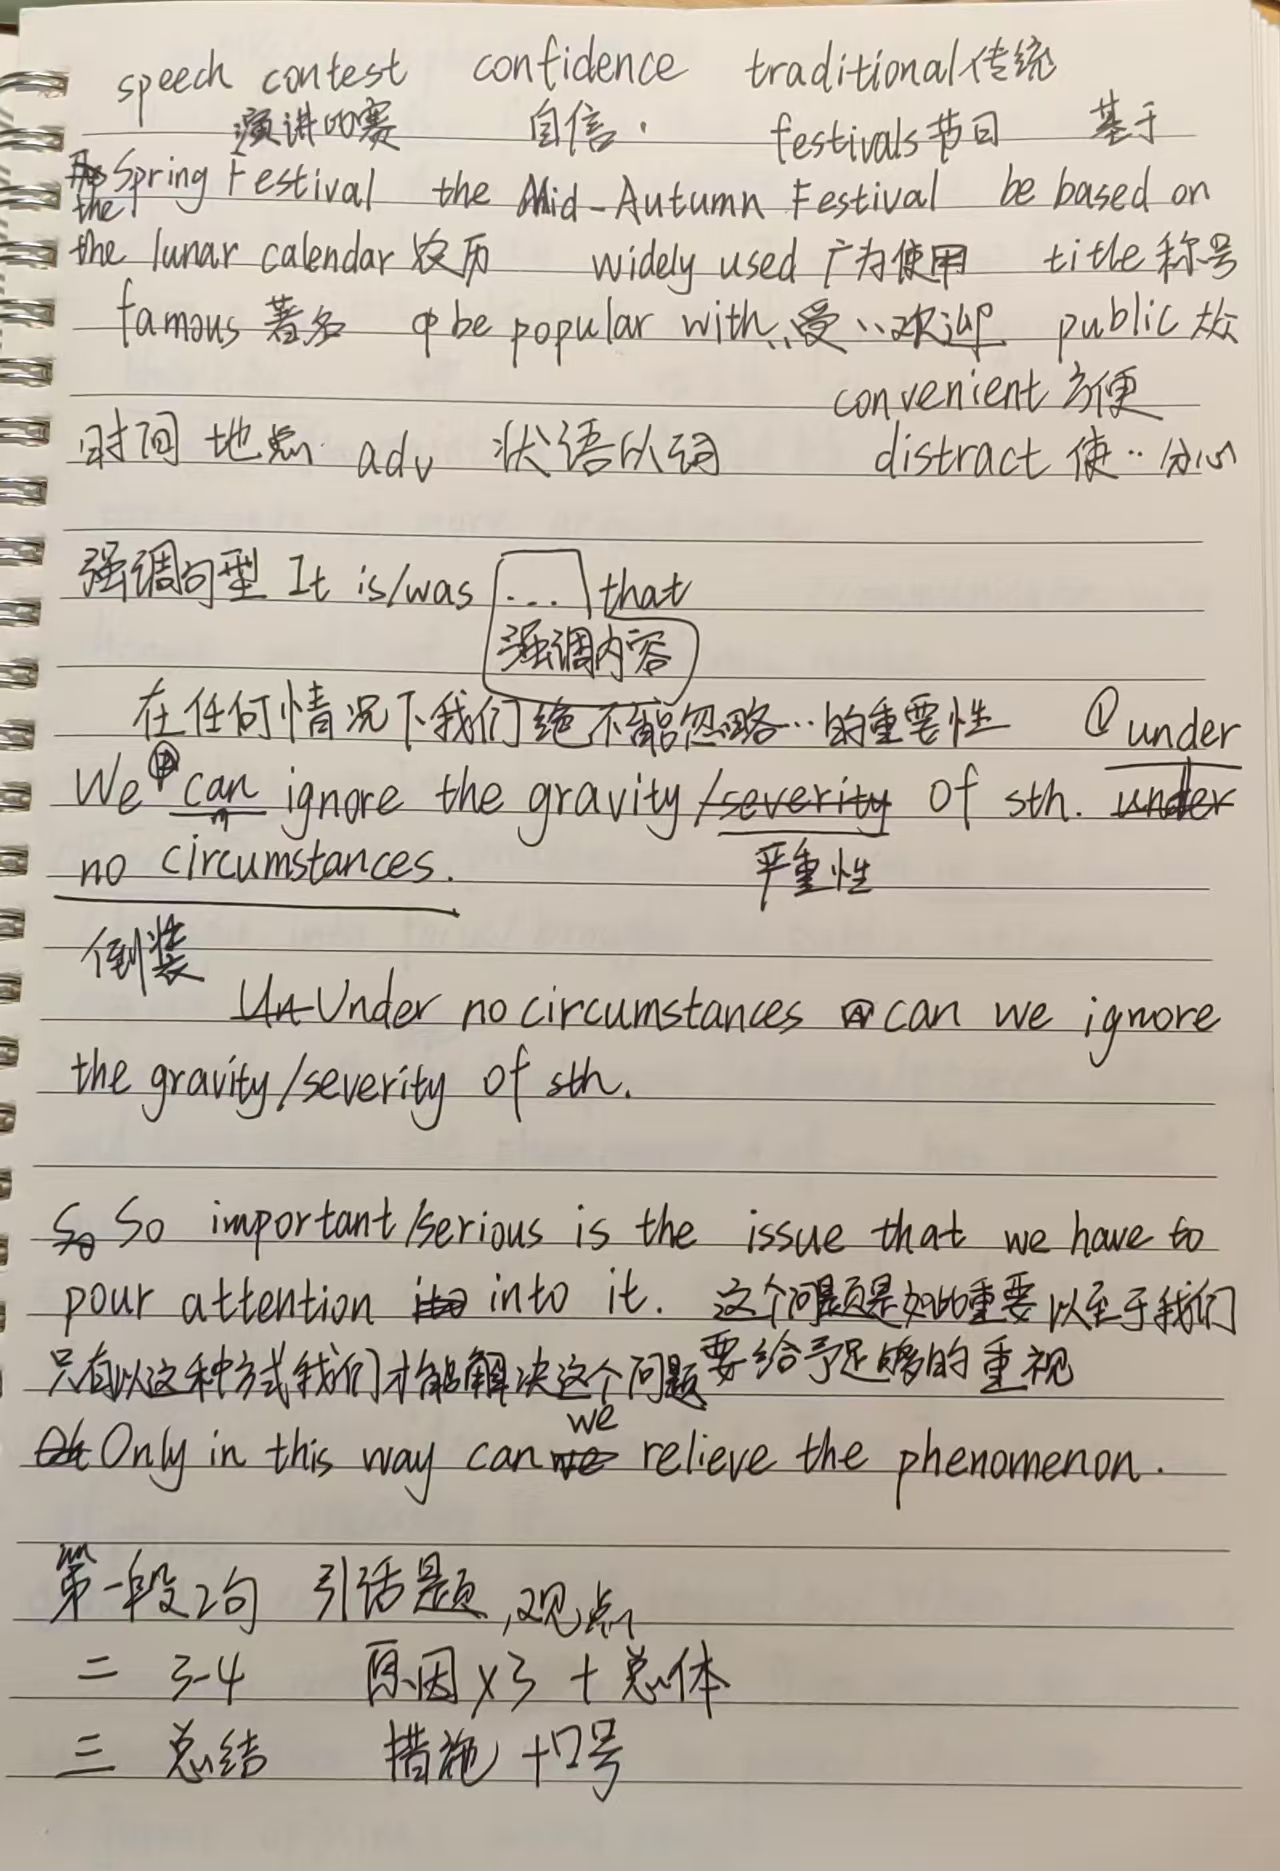 speech contest confidence traditional传统
演讲比赛 自信. festivals节日 基于
the Spring Festival the Mid-Autumn Festival be based on
the lunar calendar农历 widely used 广为使用 title称号
famous 著名 be popular with...受...欢迎 public 大众
convenient 方便
时间 地点 adv 状语 副词 distract 使..分心
强调句型 It is/was ... that
强调内容
在任何情况下我们绝不能忽略…的重要性 ① under
We can ignore the gravity/severity of sth. under
no circumstances. 严重性
倒装
Under no circumstances can we ignore
the gravity/severity of sth.
So important/serious is the issue that we have to
pour attention into it. 这个问题是如此重要以至于我们
要给予足够的重视
只有以这种方式我们才能解决这个问题
Only in this way can we relieve the phenomenon.
第一段2句 引话题,观点
二 3-4 原因×3 + 总体
三 总结 措施+口号